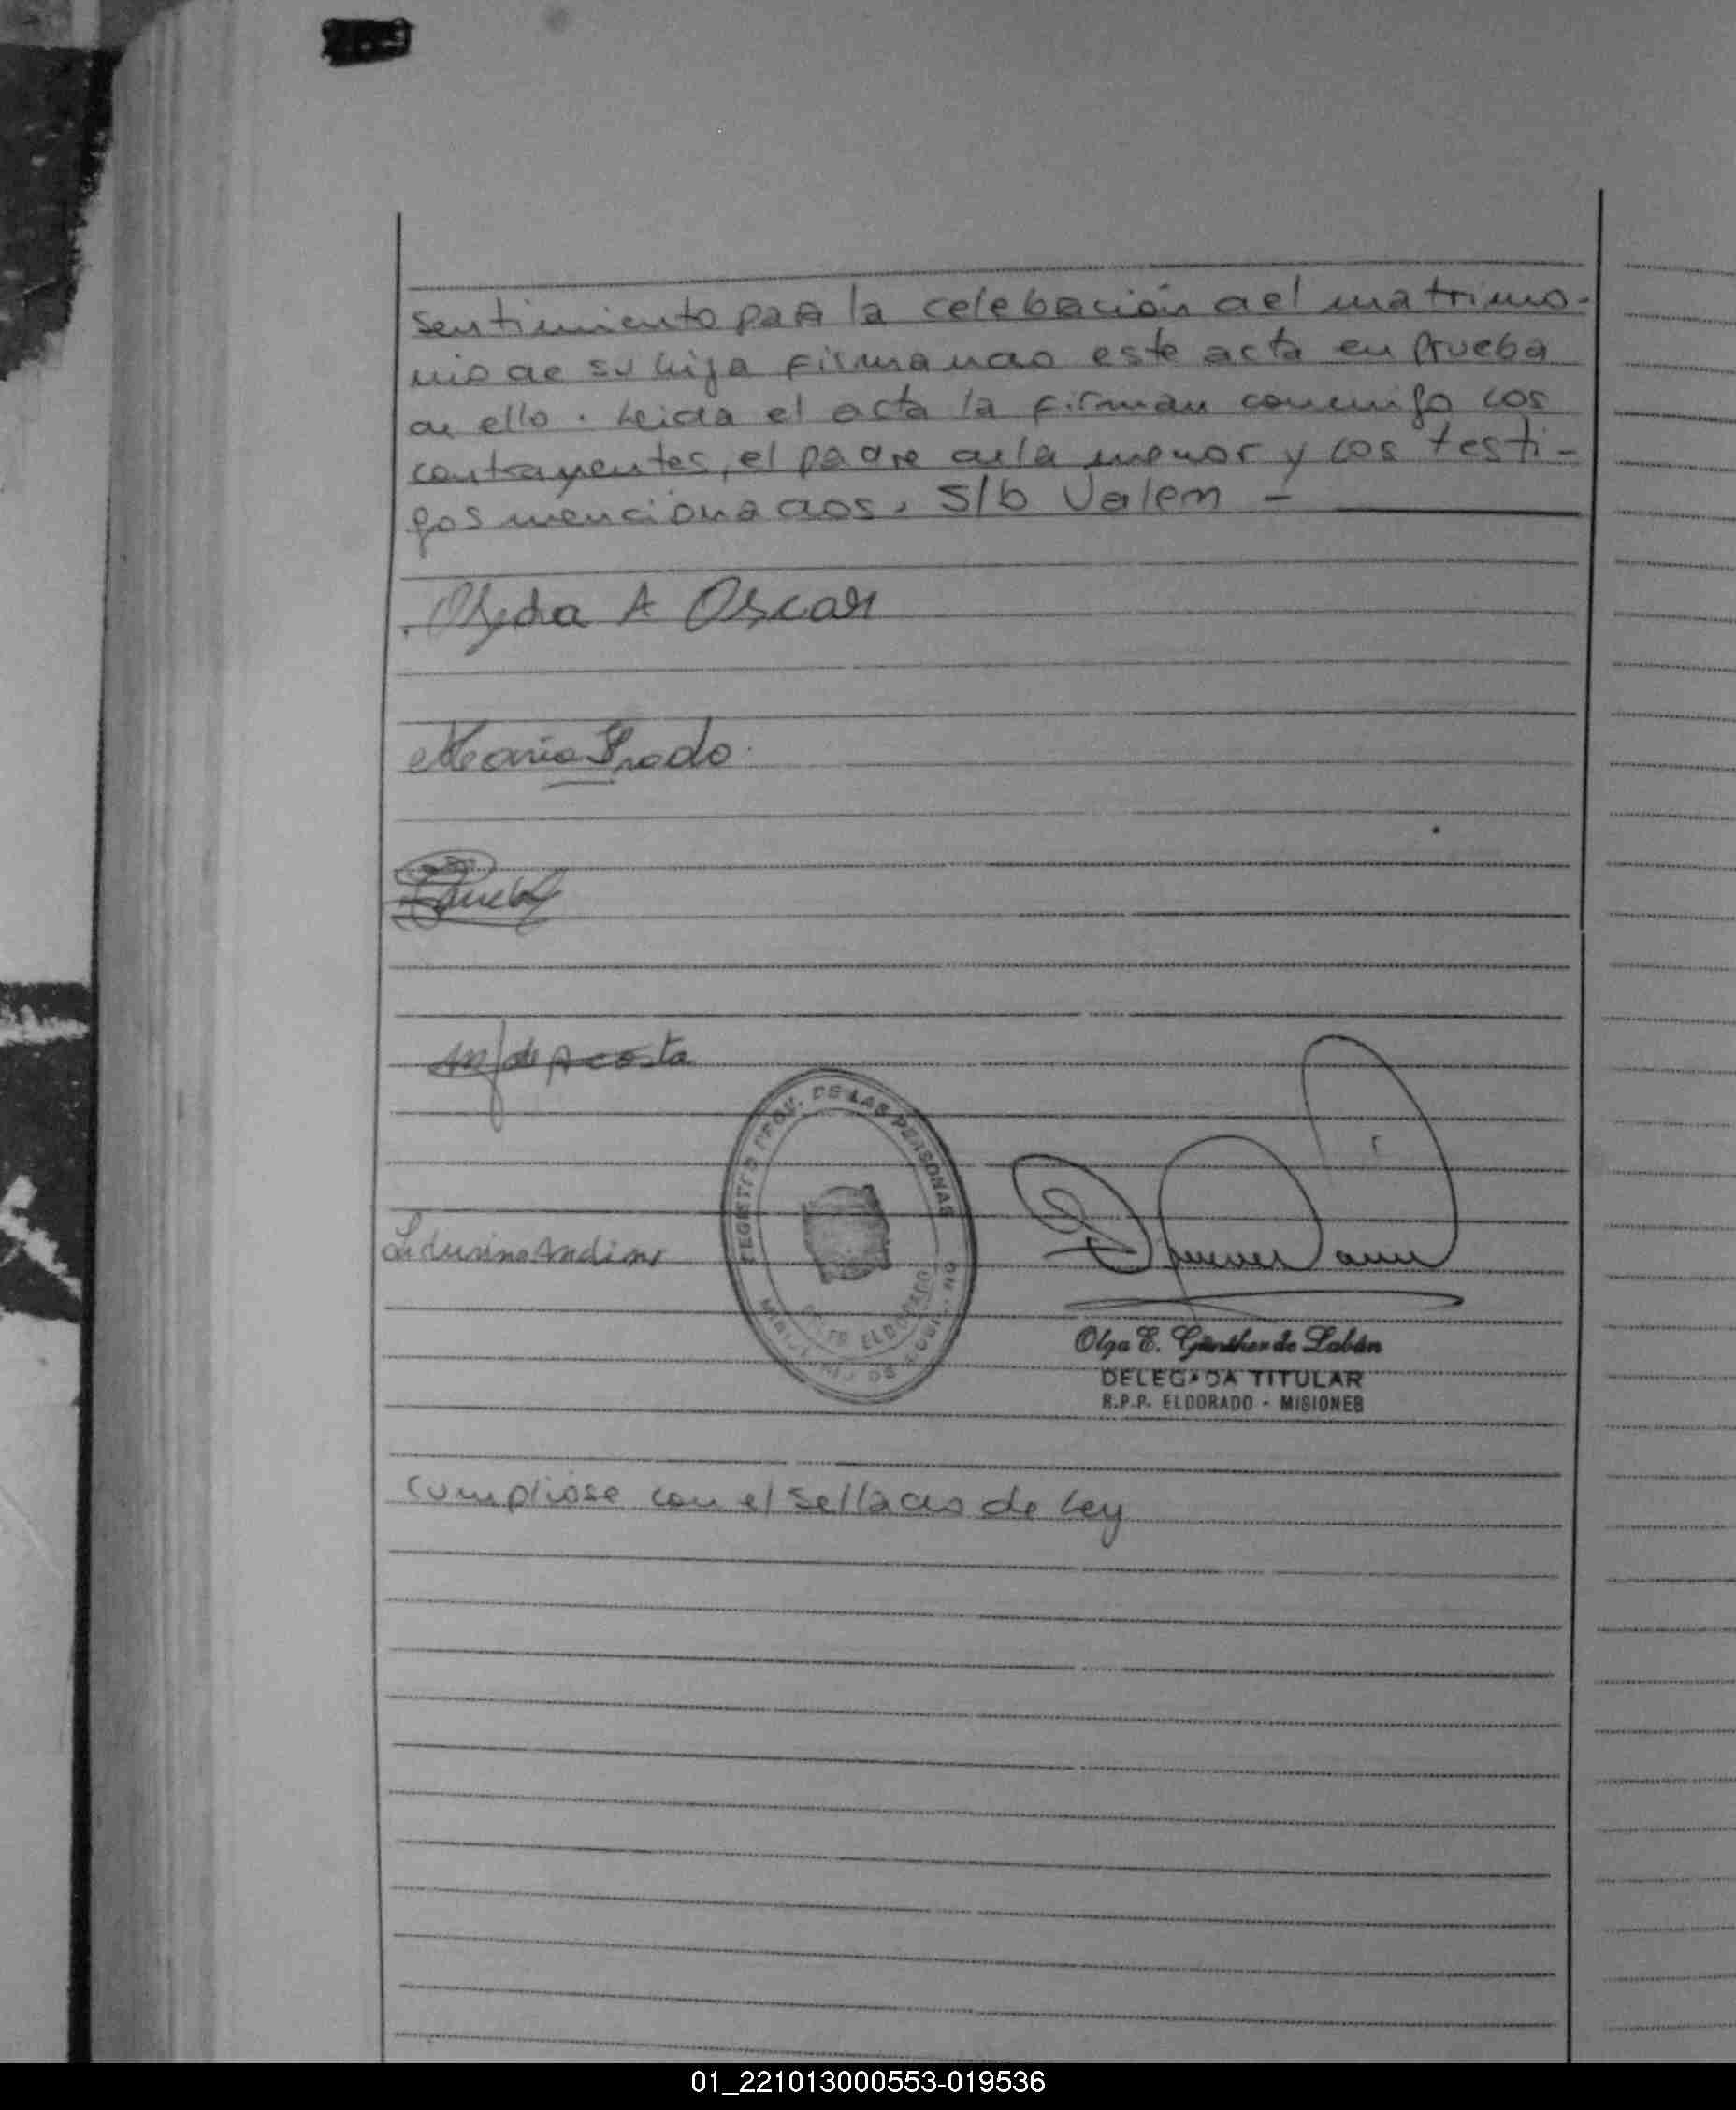 sentimiento para la celebación del matrimo-
nio de su hija firmando este acta en prueba
de ello. Leida el acta la firman conmigo los
contrayentes, el padre de la menor y los testi-
gos mencionados. S/b Valem —
A Oscar
Maria Prado
de Acosta
REGISTRO PROV. DE LAS PERSONAS
ELDORADO
Olga E. Günther de Labán
DELEGADA TITULAR
R.P.P. ELDORADO - MISIONES
Cumpliose con el sellado de Ley
01_221013000553-019536